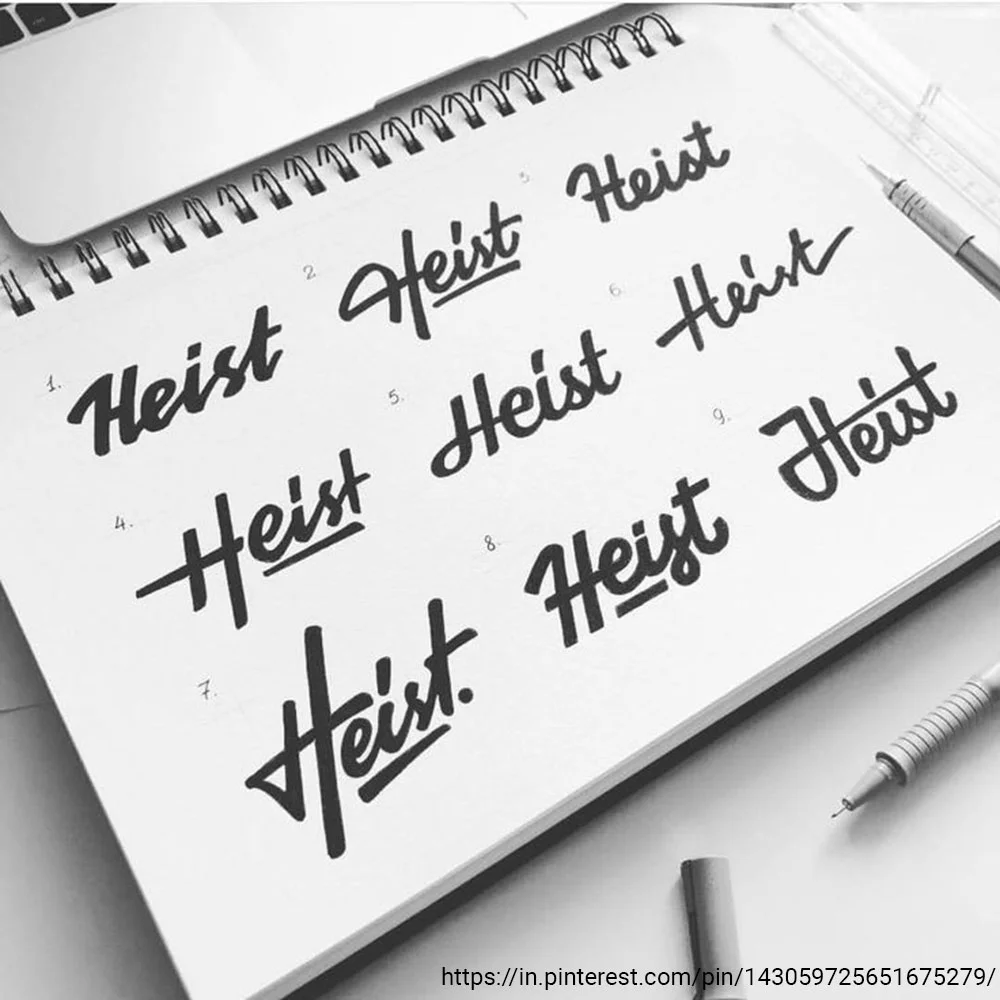 1. Heist
2 Heist
3 Heist
4. Heist
5. Heist
6. Heist
7. Heist.
8. Heist
9. Heist
https://in.pinterest.com/pin/143059725651675279/